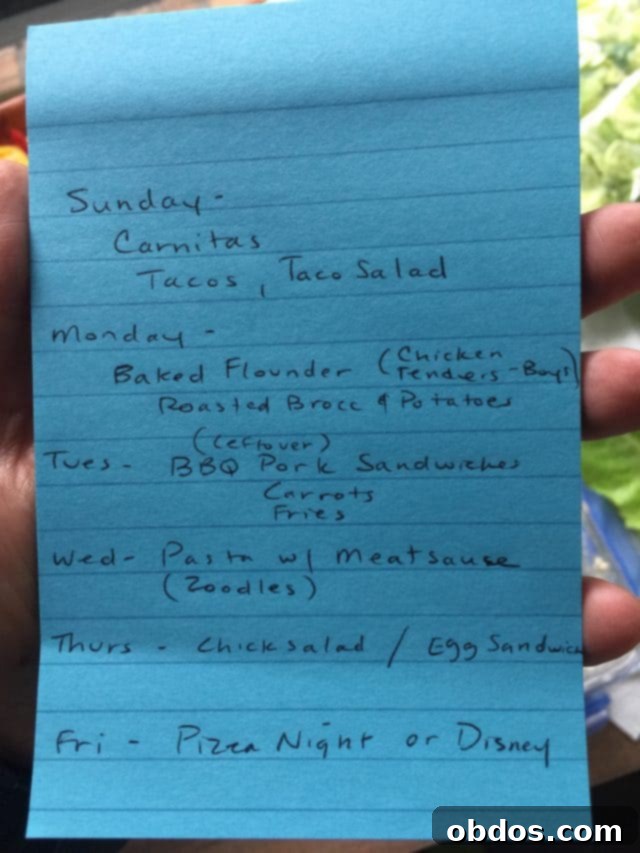 Sunday -
Carnitas
Tacos, Taco Salad
Monday -
Baked Flounder (Chicken Tenders - Boys)
Roasted Brocc & Potatoes
(leftover)
Tues - BBQ Pork Sandwiches
Carrots
Fries
Wed - Pasta w/ Meatsause
(Zoodles)
Thurs - Chick salad / Egg Sandwich
Fri - Pizza Night or Disney
obdos.com